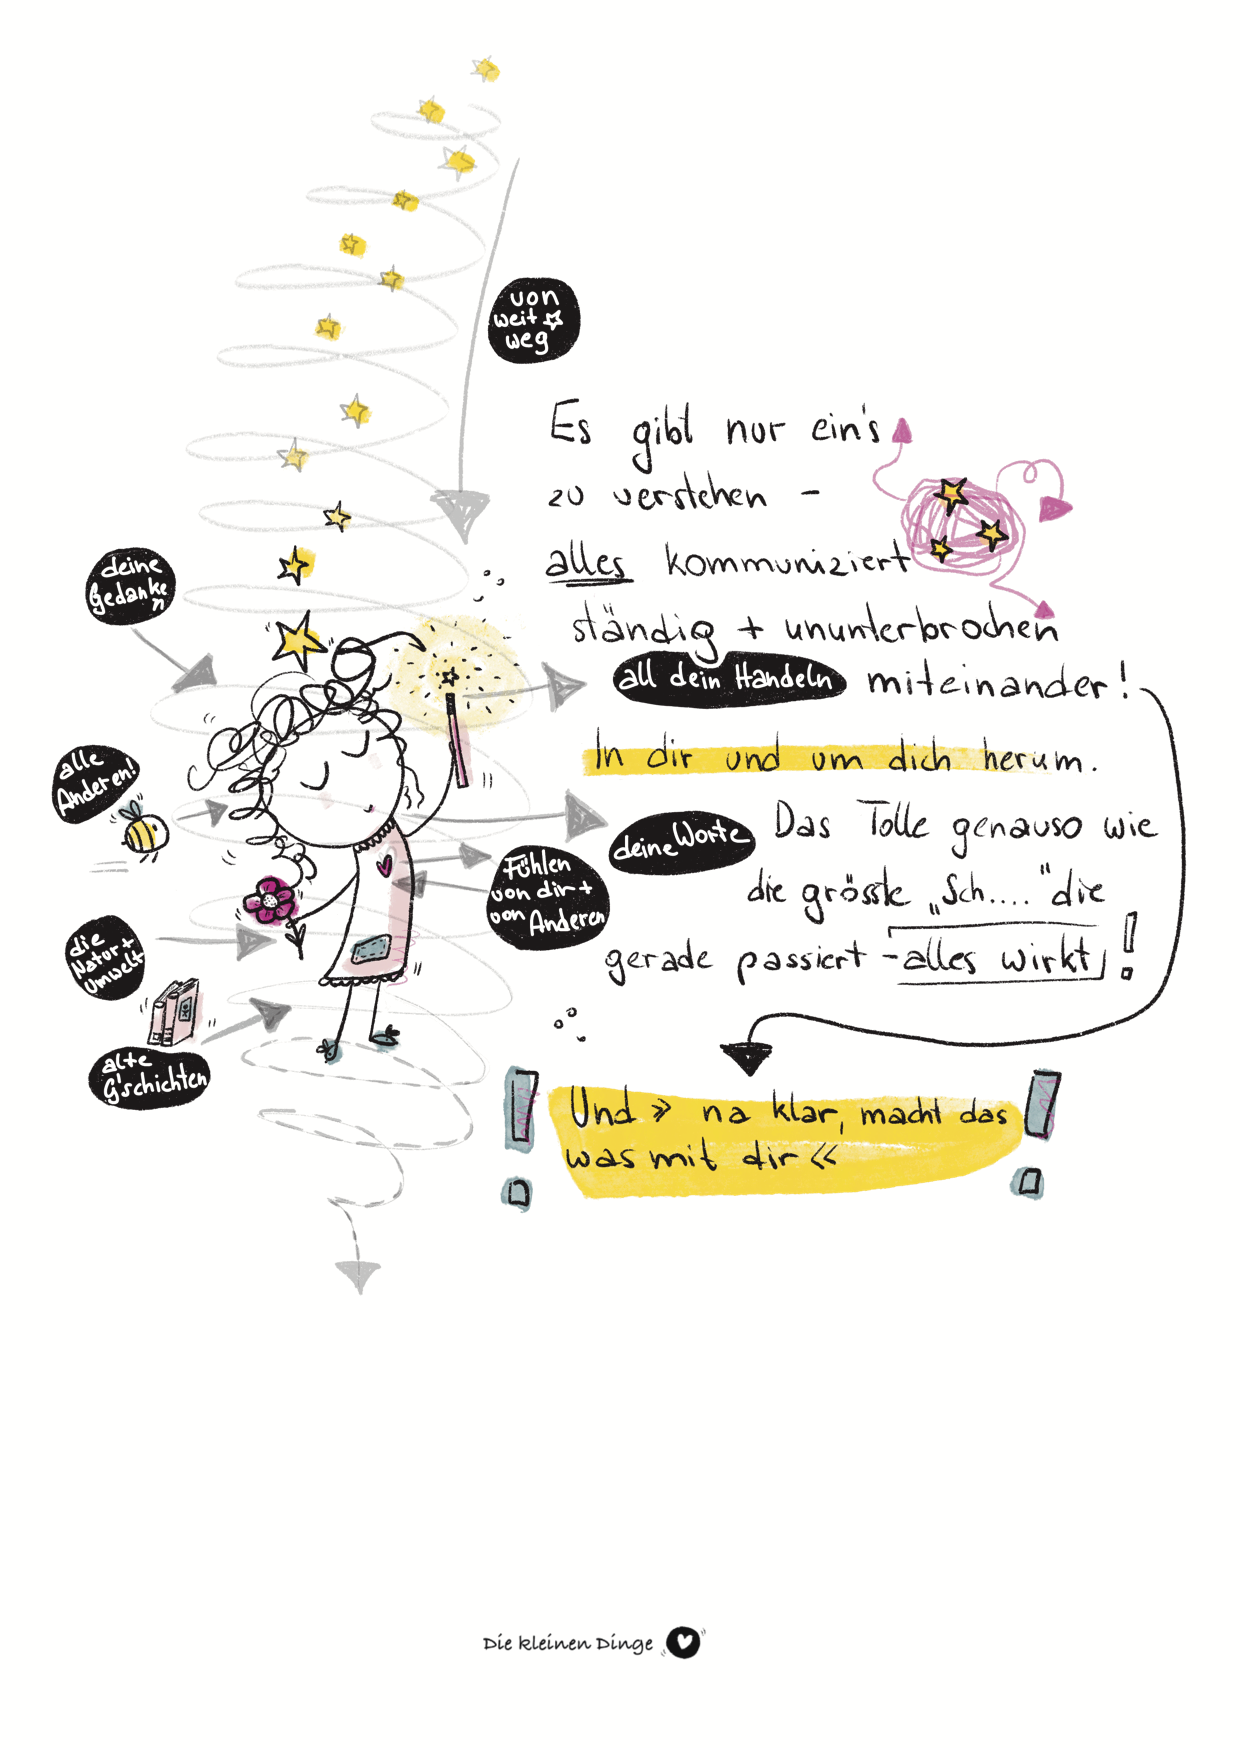 von
weit
weg
Es gibt nur ein's
zu verstehen -
alles kommuniziert
ständig + ununterbrochen
all dein Handeln
miteinander!
In dir und um dich herum.
deine Worte
Das Tolle genauso wie
die grösste „Sch...." die
gerade passiert - alles wirkt!
Und » na klar, macht das
was mit dir «
deine
Gedanken
alle
Anderen!
Fühlen
von dir +
von Anderen
die
Natur +
Umwelt
alte
G'schichten
Die kleinen Dinge